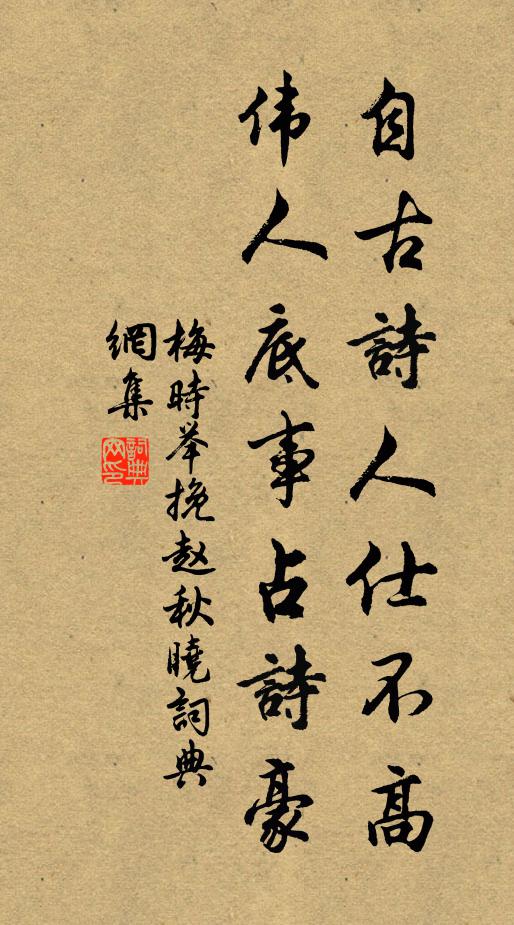 自古詩人仕不高
伟人底事占詩豪
梅時举挽赵秋曉詞典
網集
詞典
网印